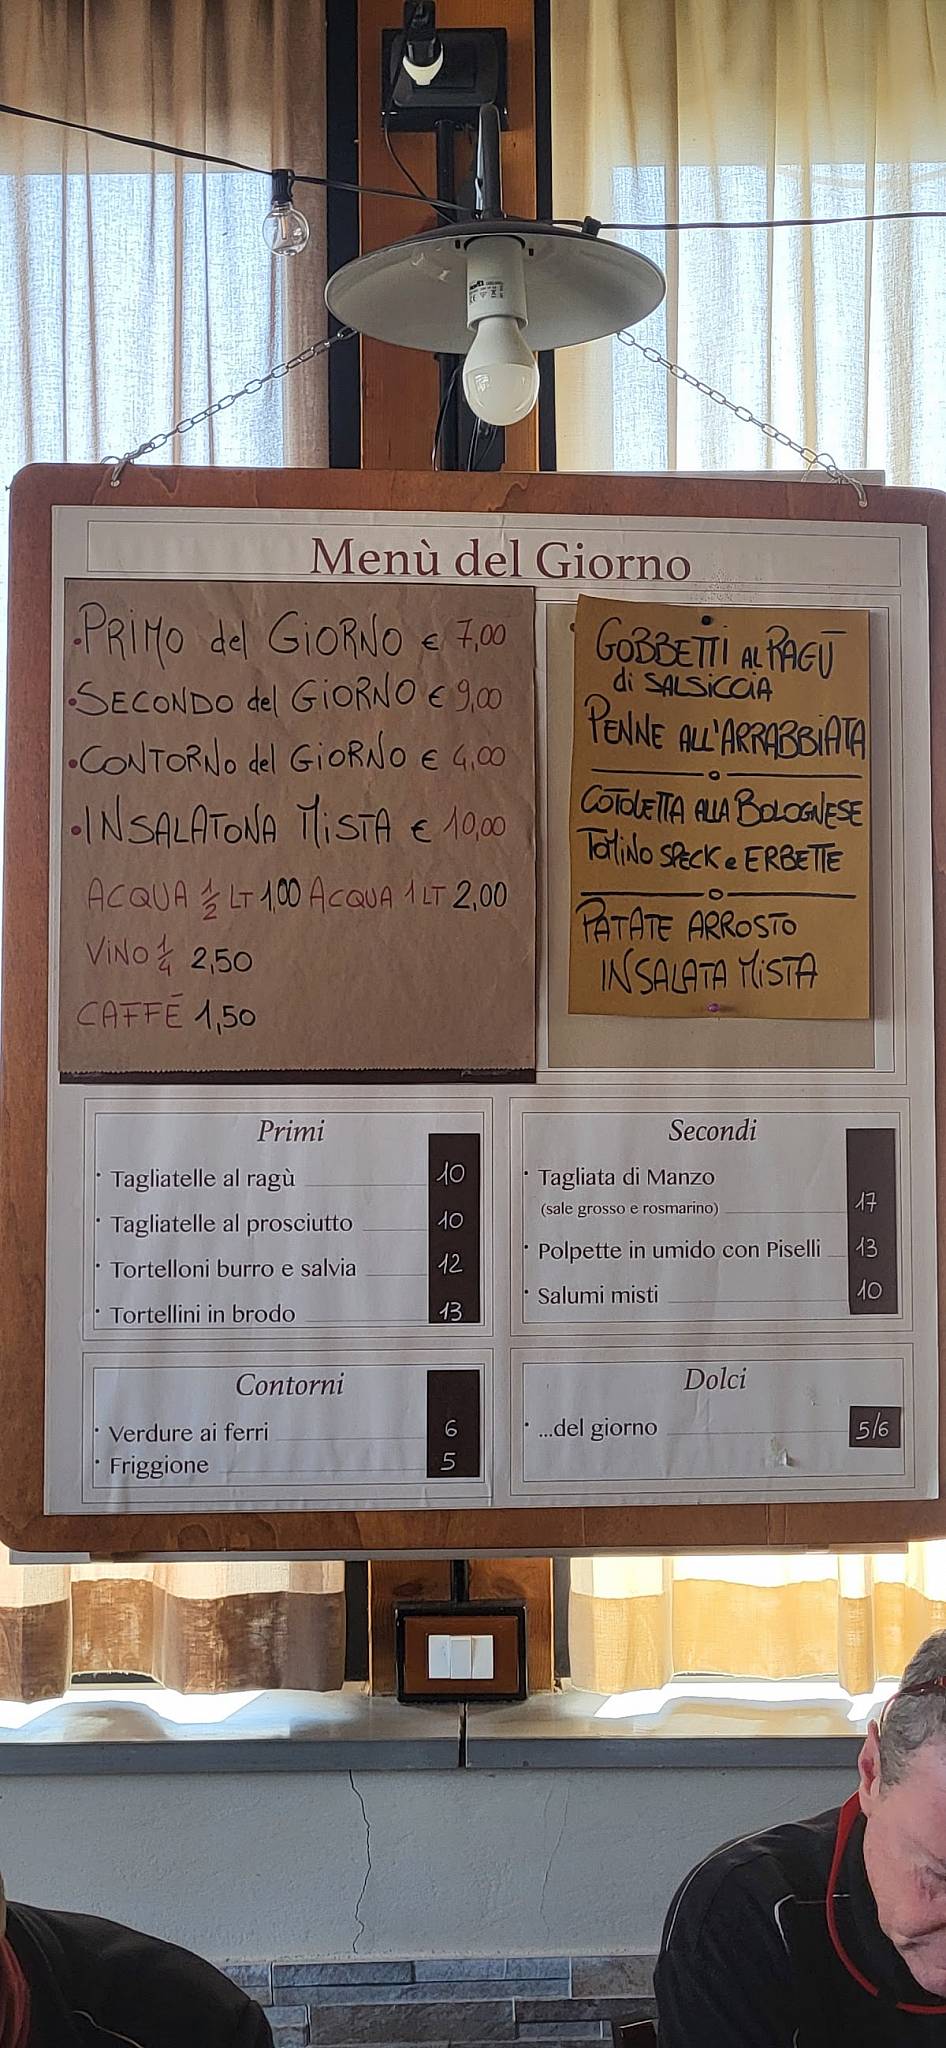 Menù del Giorno
• PRIMO del GIORNO € 7,00
• SECONDO del GIORNO € 9,00
• CONTORNO del GIORNO € 4,00
• INSALATONA MISTA € 10,00
ACQUA 1/2 LT 1,00 ACQUA 1 LT 2,00
VINO 1/4 2,50
CAFFÉ 1,50
GOBBETTI AL RAGÙ
di SALSICCIA
PENNE ALL'ARRABBIATA
COTOLETTA ALLA BOLOGNESE
TOMINO SPECK e ERBETTE
PATATE ARROSTO
INSALATA MISTA
Primi
• Tagliatelle al ragù 10
• Tagliatelle al prosciutto 10
• Tortelloni burro e salvia 12
• Tortellini in brodo 13
Secondi
• Tagliata di Manzo
(sale grosso e rosmarino) 17
• Polpette in umido con Piselli 13
• Salumi misti 10
Contorni
• Verdure ai ferri 6
• Friggione 5
Dolci
• ...del giorno 5/6